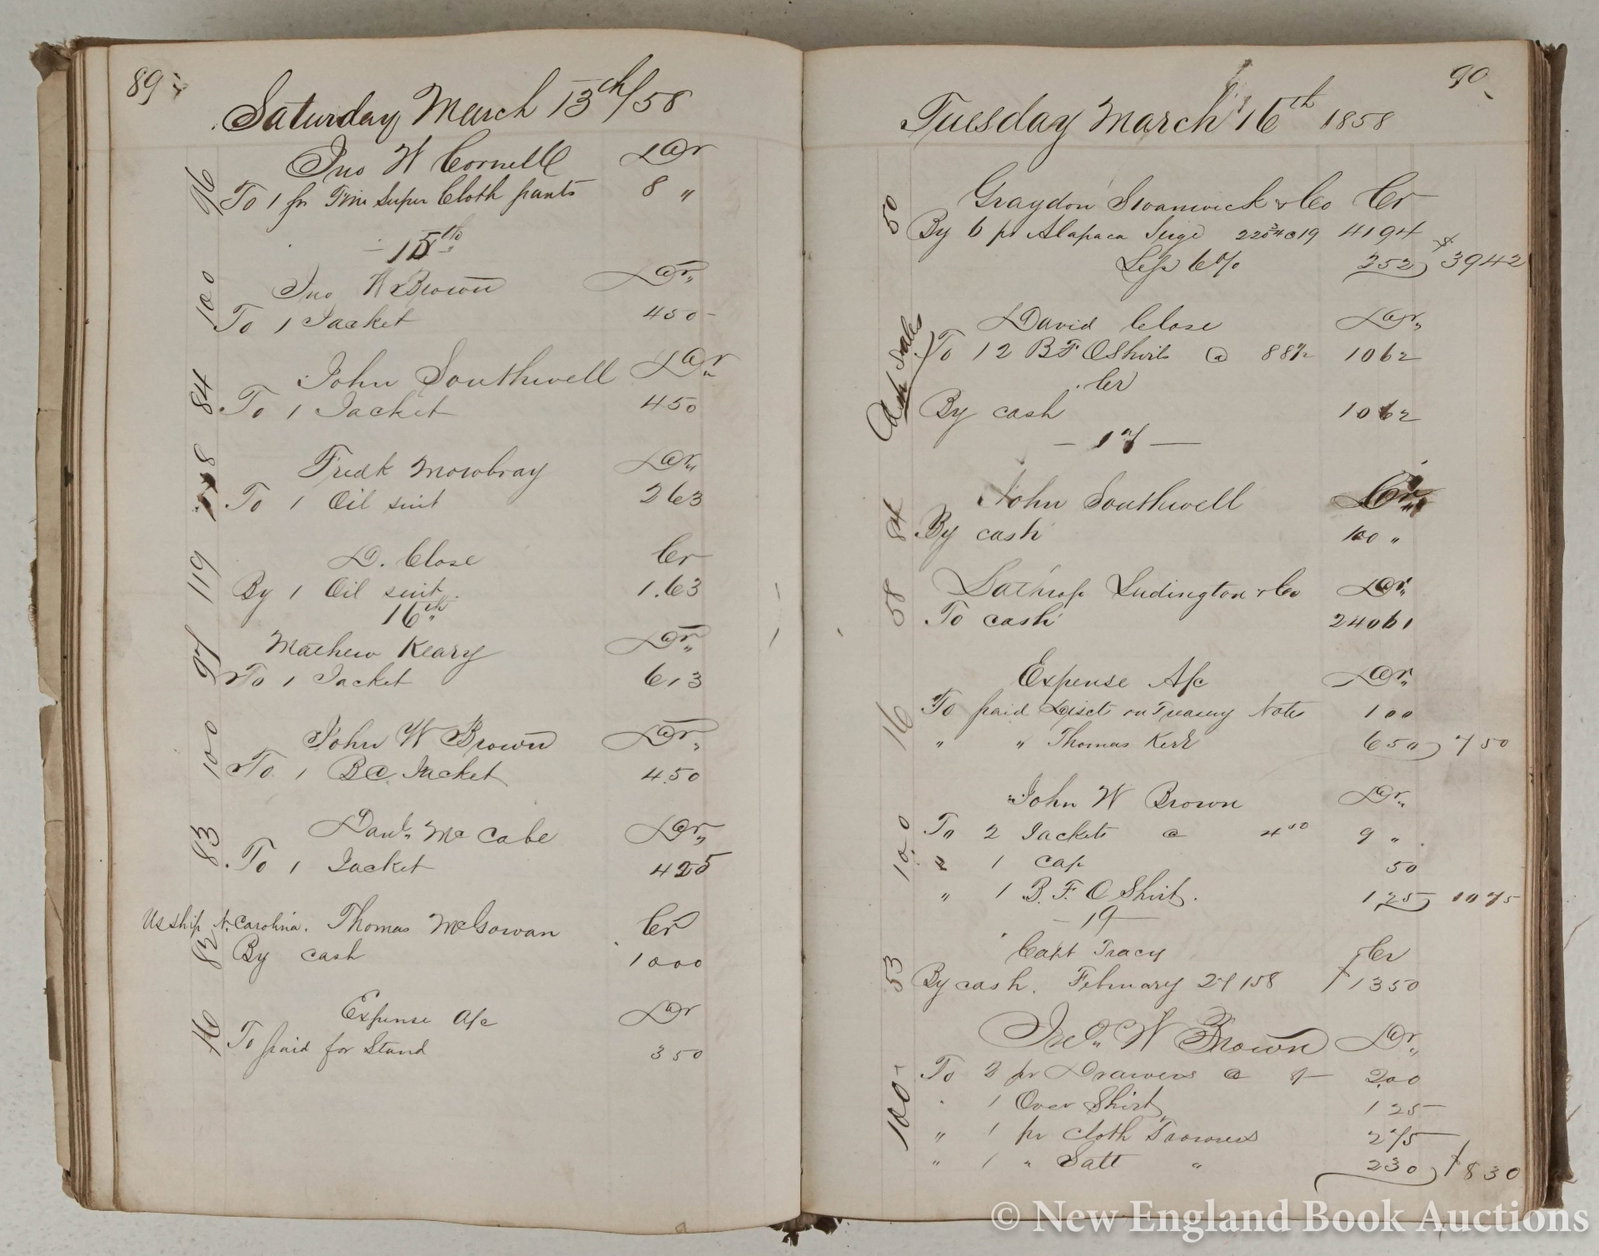 89
Saturday March 13th/58
96
Jno W Cornell Dr
To 1 pr Fine Super Cloth pants 8 "
15th
100
Jno W Brown Dr
To 1 Jacket 450
84
John Southwell Dr
To 1 Jacket 450
118
Fredk Mowbray Dr
To 1 Oil suit 263
119
D. Close Cr
By 1 Oil suit 1.63
16th
97
Mathew Keary Dr
To 1 Jacket 613
100
John W Brown Dr
To 1 Jacket 450
83
Danl. McCabe Dr
To 1 Jacket 425
US Ship N. Carolina. Thomas McGowan Cr
82
By cash 1000
16
Expense A/c Dr
To paid for Stand 350
90
Tuesday March 16th 1858
50
Graydon Swanwick & Co Cr
By 6 pr Alapaca 4194
Less 6% 252 $3942
Cash Sales
David Close Dr
To 12 B F O Shirts @ 88½ 1062
Cr
By cash 1062
17
84
John Southwell Cr
By cash 100 "
58
Lathrop Ludington & Co Dr
To cash 24061
16
Expense A/c Dr
To paid Disct on Treasury Notes 100
" " Thomas Kerr 650 750
100
John W Brown Dr
To 2 Jackets @ 4 50 9 "
" 1 cap 50
" 1 B. F. O Shirt. 125 1075
19
53
Capt Tracy Cr
By cash. February 27/58 $1350
100
Jno. W Brown Dr
To 2 pr Drawers @ 1- 200
" 1 Over Shirt 125
" 1 pr Cloth Trowsers 275
" 1 " Satt " 230 $830
© New England Book Auctions